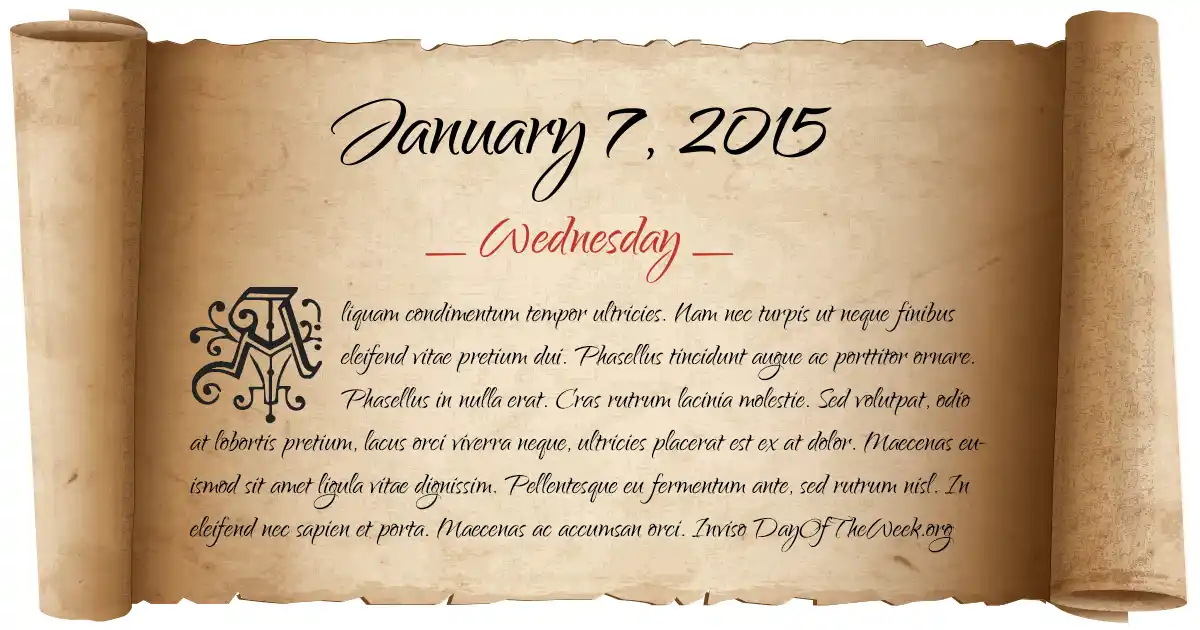 January 7, 2015
— Wednesday —
Aliquam condimentum tempor ultricies. Nam nec turpis ut neque finibus
eleifend vitae pretium dui. Phasellus tincidunt augue ac porttitor ornare.
Phasellus in nulla erat. Cras rutrum lacinia molestie. Sed volutpat, odio
at lobortis pretium, lacus orci viverra neque, ultricies placerat est ex at dolor. Maecenas eu-
ismod sit amet ligula vitae dignissim. Pellentesque eu fermentum ante, sed rutrum nisl. In
eleifend nec sapien et porta. Maecenas ac accumsan orci. Inviso DayOfTheWeek.org